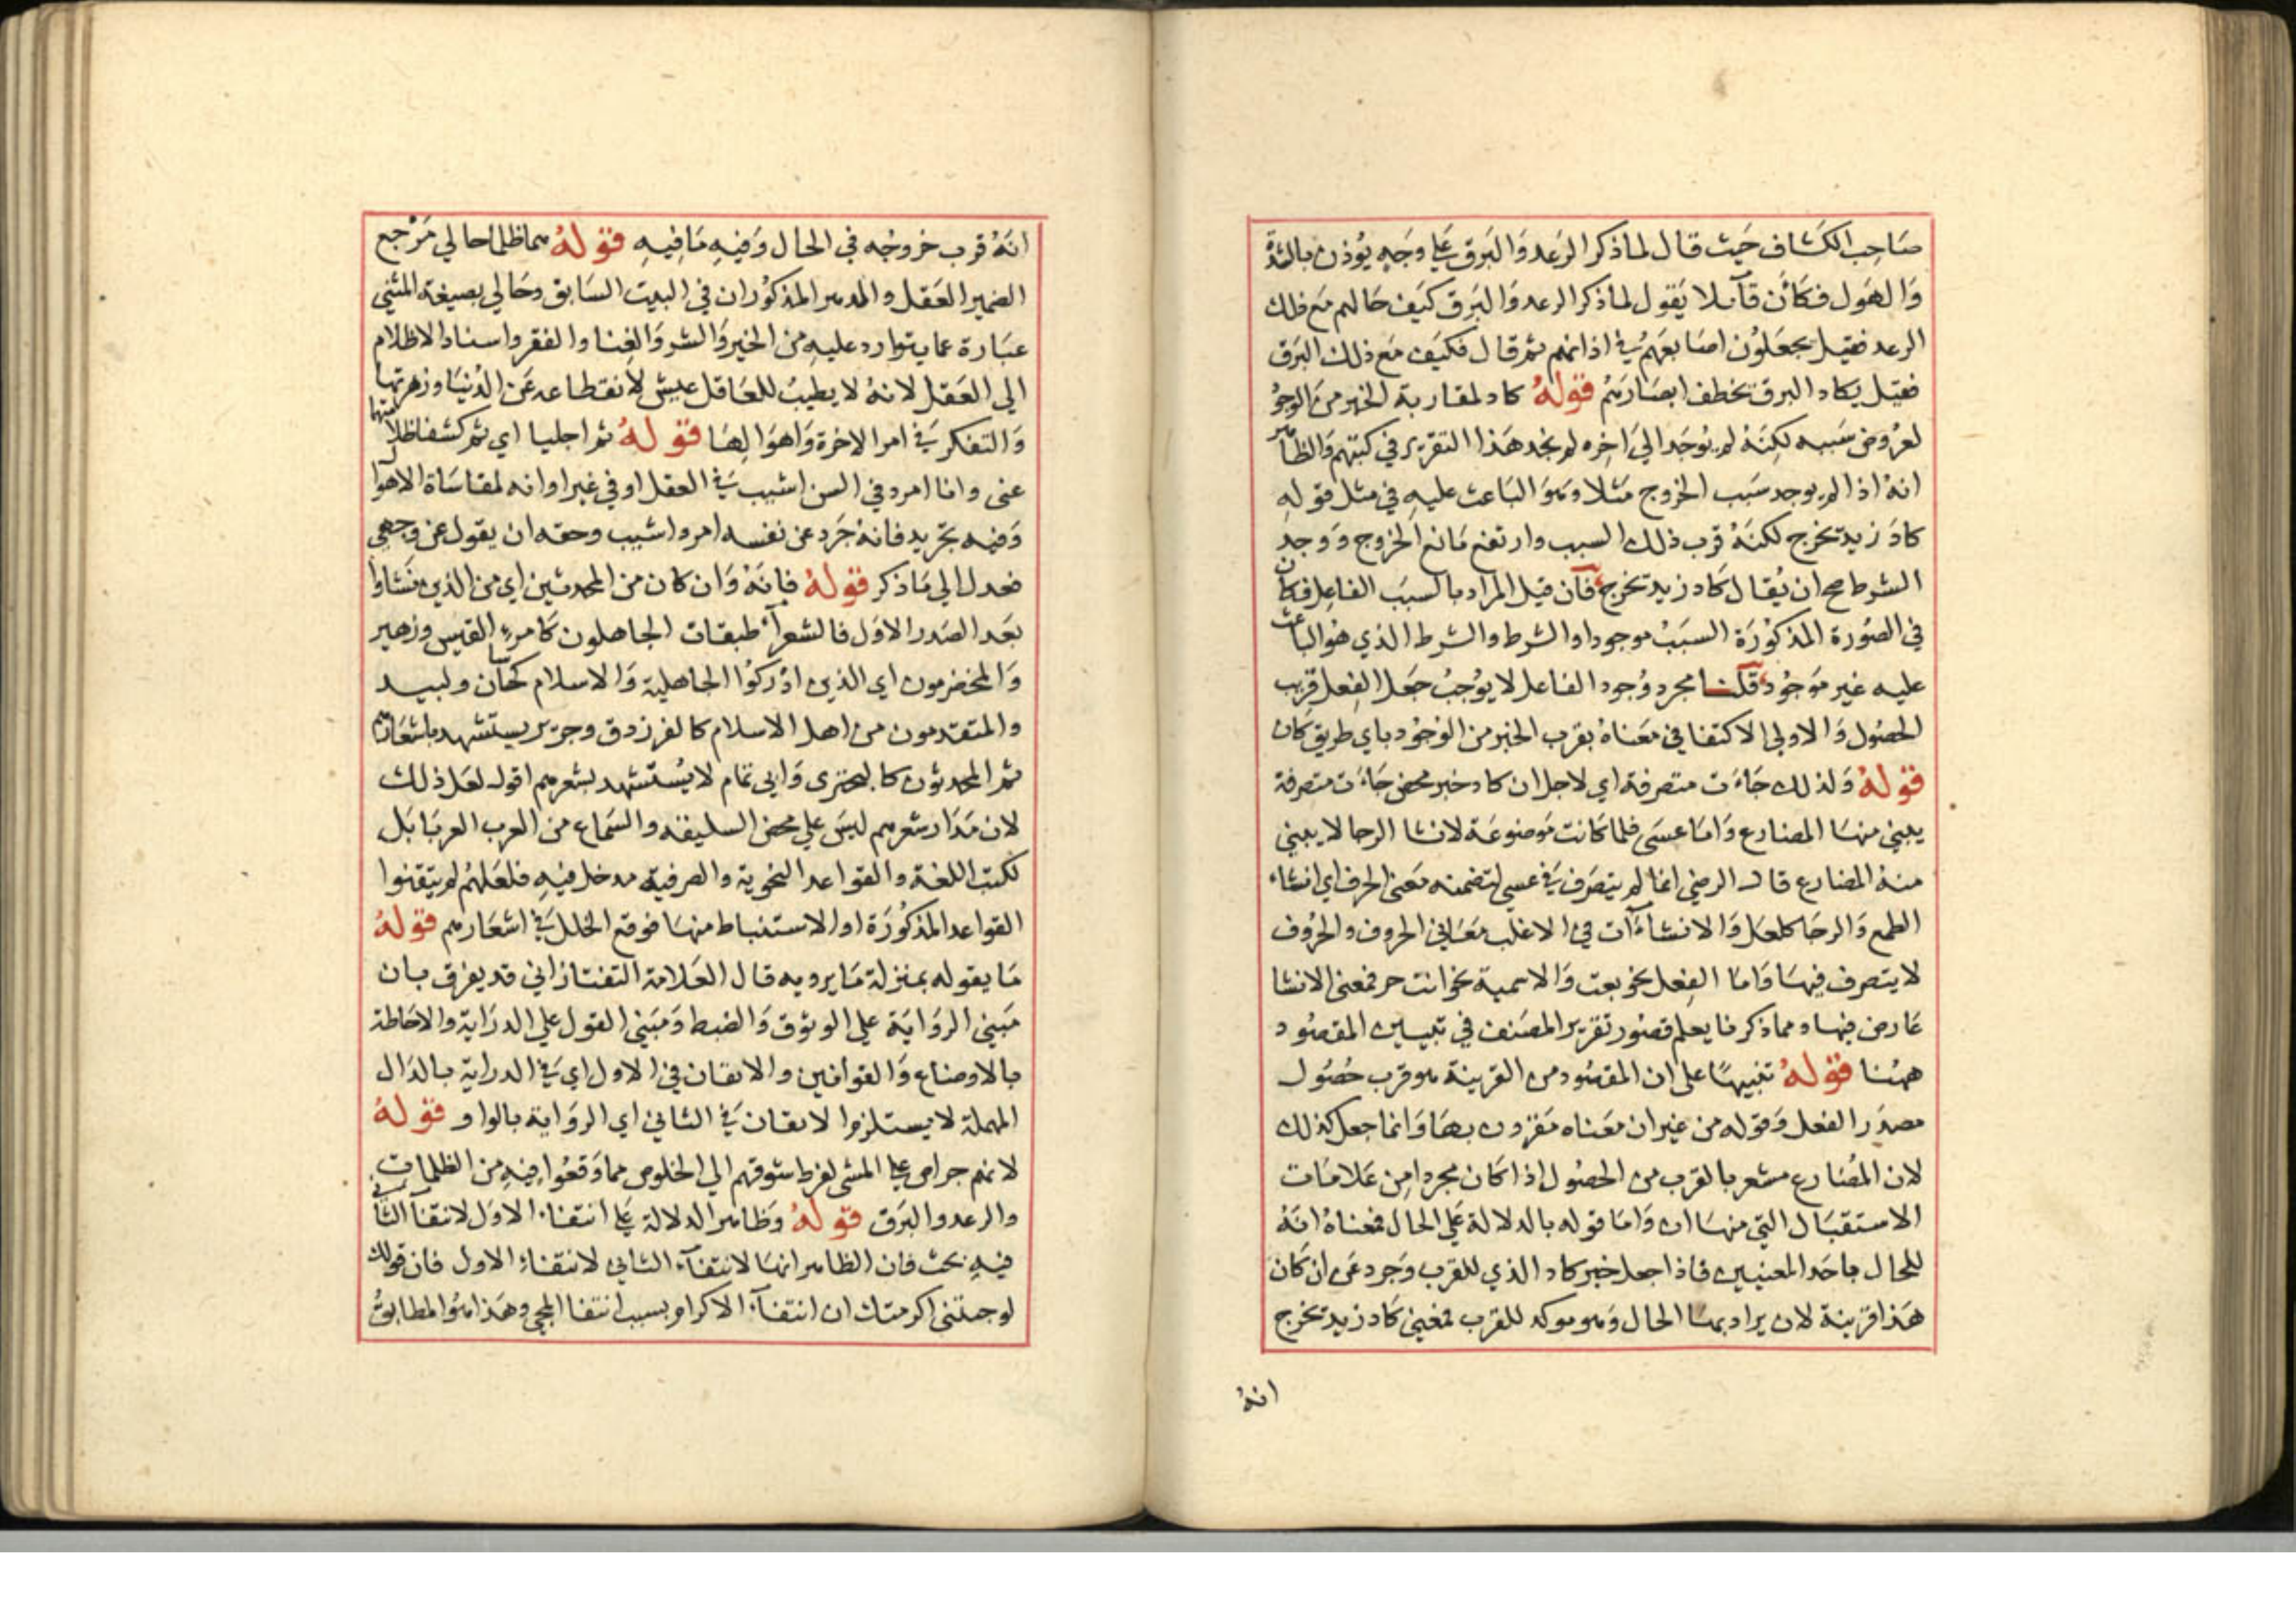 صَاحِب الكشاف حَيث قال لما ذكر الرَعد وَالبَرق عَلى وَجهٍ يُوذن بالشدة
وَالهَول فكأن قآئلا يَقول لما ذكر الرعد وَالبَرق كَيفَ حَالهم مَع ذلك
الرعد فقيل يجعَلُون اصَابعَهُم فى اذانهم ثمر قال فكيَف مَع ذلك البَرق
فقيل يكاد البرق يخطف ابصَارَهُم قولهُ كاد لمقاربة الخبر من الوجُود
لعرُوض سَببه لكِنَهُ لم يُوجَد الي اخِره لم نجد هَذا التقرير في كتبهم وَالظاهر
انهُ اذا لم يوجد سَبب الخروج مَثلا وَهوَ البَاعث عليهِ في مثل قولهِ
كادَ زيد يخرج لكنهُ قرب ذلك السبب وارتفع مَانع الخروج وَوجد
الشرط صح ان يُقال كَاد زيد يخرج فان قيل المراد بالسبَب الفاعِل فكان
في الصُورة المذكوُرَة السبَبُ موجودا والشرط والشرط الذي هُو الباعث
عليه غير مَوجُود قلنا مجرد وُجود الفاعل لا يوُجبُ جعَل الفِعل قريب
الحصُول وَالاولي الاكتفا في مَعناهُ بقرب الخبر من الوُجوُد باي طريق كان
قولهُ وَلذلك جَاءَت متصرفة اي لاجل ان كاد خبر محض جَاءَت متصرفة
يبنى منهَا المضارع وَامَا عسَى فلما كانت مَوضوعَة لانشا الرجا لا يبنى
منهُ المضارع قال الرضي انما لم يتصَرف فى عسى لتضمنه مَعنى الحرف اي انشاء
الطمع وَالرجَا كلعَل وَالانشاءَآت في الاغلب مَعَاني الحروف والحُروُف
لا يتصرف فيهَا وَامَا الفِعل نحو بعت وَالاسمية نحو انت حر فمعنى الانشا
عَارض فيها ومما ذكرنا يعلم قصُور تقرير المصَنف في تبيين المقصُود
ههُنا قولهُ تنبيهًا على ان المقصُود من القرينة هو قرب حُصُول
مصدَر الفعل وَقوله من غير ان مَعناه مَقرون بهَا وَانما جعل كذلك
لان المُضارع مشعر بالقرب من الحصُول اذا كان مجردا من عَلامَات
الاستقبَال التي منهَا ان وَامَا قوله بالدلالة عَلي الحال فمعناهُ انَهُ
للحال باحَد المعنيين فاذا جعل خبر كاد الذي للقرب وَجرد عَن ان كَانَ
هَذا قرينة لان يراد بهَا الحال وَهو موكد للقرب فمعنى كَاد زيد يخرج
انهُ
انهُ قرب خروجُه في الحال وَفيهِ مَا فِيهِ قولهُ هما اظلما حالي مَرْجع
الضمير العَقل والدهر المذكوُران في البيت السَابق وحَالي بصيغة المثني
عبَارة عما يتوارد عليهِ من الخير وَالشر وَالغِنا والفقر واسناد الاظلام
الي العَقل لانهُ لا يطيبُ للعَاقل عيش لانقطاعه عَن الدُنيَا وزهرتها
وَالتفكر فى امر الاخرة وَاهوَالِهَا قولهُ ثمر اجليا اي ثمر كشفا ظلاميهما
عنى وانا امرد في السن اشيب فى العقل او في غير اوانه لمقاسَاة الاهوال
وَفيه تجَريد فانهُ جَرد عن نفسه امردا اشيب وحقه ان يقول عن وجهي
فعدل الي مَا ذكر قولهُ فانهُ وَان كان من المحدثين اي من الذين نشَاوا
بعَد الصَدر الاوَل فالشعرآء طبقات الجاهلون كامرء القيس وزهير
وَالمخضرمون اي الذين ادْركوُا الجاهلية وَالاسلام كحسان ولبيد
والمتقدمون من اهل الاسلام كالفرزدق وجرير يستشهد باشعَارهم
ثمر المحدثون كالبحترى وَابي تمام لا يسُتشهد بشعرهم اقول لعَل ذلك
لان مَدَار شعرهم ليسَ علي محض السليقه والسَماع من العرب العربَا بَل
لكتب اللغة والقواعد النحوية والصرفية مدخل فيهِ فلعَلهُم لم يتقنوا
القواعد المذكوُرَة او الاستنباط منهَا فوقع الخلل فى اشعَارهم قولهُ
مَا يقوله بمنزلة مَا يرويه قال العَلامة التفتازاني قد يفرق بان
مَبني الروَايَة علي الوثوق وَالضبط وَمَبني القول علي الدرَاية والاحَاطة
بالاوضاع وَالقوانين والاتقان في الاول اي فى الدراية بالدَال
المهملة لا يستلزم الاتقان فى الثاني اي الروَاية بالواو قولهُ
لانهم حراص علي المشى لفرط شوقهم الي الخلوص مما وَقعُوا فيهِ من الظلمات
والرعد والبَرق قولهُ وَظاهر الدلالة عَلى انتفاء الاوَل لانتفآ الثاني
فيهِ بحث فان الظاهر انهَا لانتفآء الثاني لانتفاء الاول فان قولك
لو جئتني اكرمتك ان انتفآء الاكرام بسبب انتفا المجي وهَذا هُو المطابقُ